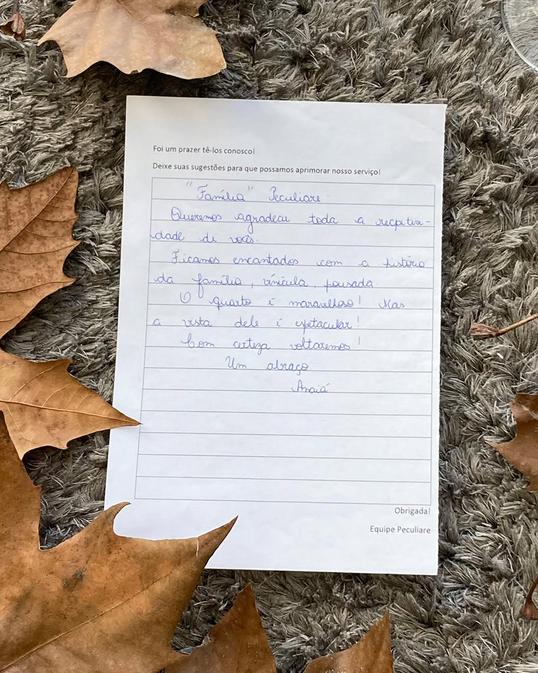 Foi um prazer tê-los conosco!
Deixe suas sugestões para que possamos aprimorar nosso serviço!
"Família" Peculiare
Queremos agradecer toda a receptivi-
dade de vocês.
Ficamos encantados com a história
da família, vinícula, pousada
O quarto é maravilhoso! Mas
a vista dele é espetacular!
Com certeza voltaremos!
Um abraço
Obrigada!
Equipe Peculiare